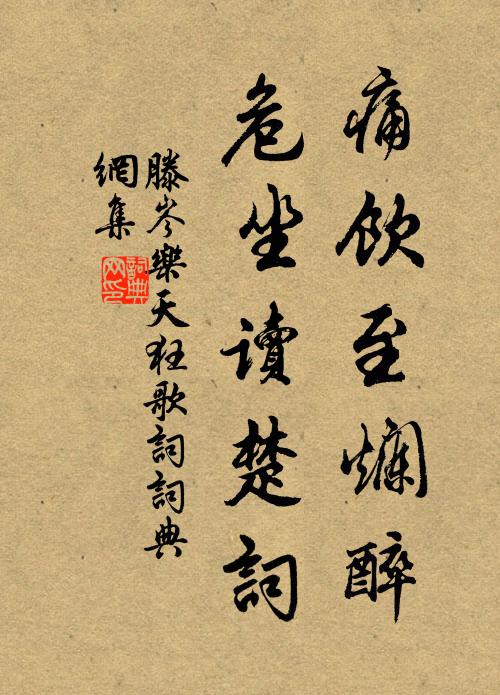 痛飲至爛醉
危坐讀楚詞
滕岑樂天狂歌詞詞典
網集
詞典網印